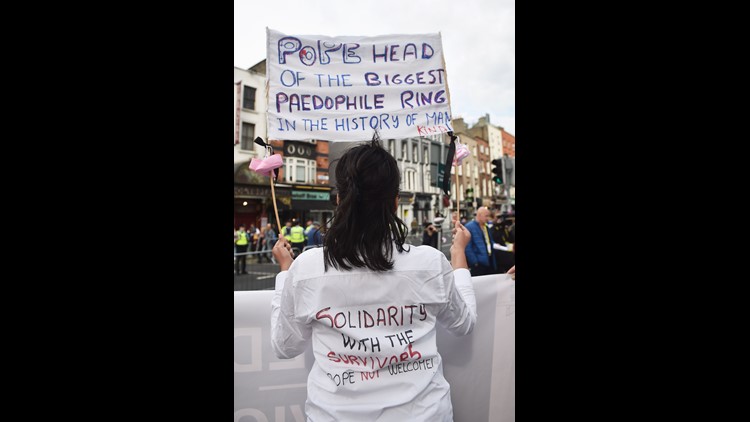 POPE HEAD
OF THE BIGGEST
PAEDOPHILE RING
IN THE HISTORY OF MAN
KIND!
SOLIDARITY
WITH THE
SURVIVORS
POPE NOT WELCOME!